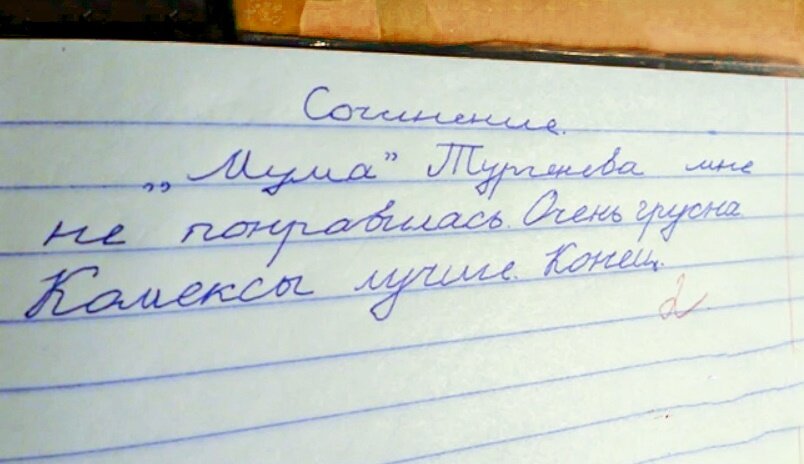 Сочинение.
„Мума" Тургенева мне
не понравилась. Очень грусна
Комексы лучше. Конец.
2